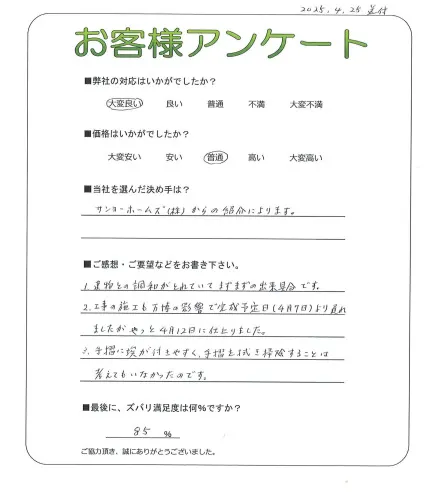 2025.4.25 受付
お客様アンケート
■弊社の対応はいかがでしたか？
大変良い 良い 普通 不満 大変不満
■価格はいかがでしたか？
大変安い 安い 普通 高い 大変高い
■当社を選んだ決め手は？
サンヨーホームズ(株)からの紹介によります。
■ご感想・ご要望などをお書き下さい。
1.建物との調和がとれていてまずまずの出来具合です。
2.工事の施工も万博の影響で完成予定日(4月7日)より遅れ
ましたがやっと4月12日に仕上りました。
3.手摺に埃が付きやすく、手摺を拭き掃除することは
考えてもいなかったのです。
■最後に、ズバリ満足度は何%ですか？
85 %
ご協力頂き、誠にありがとうございました。